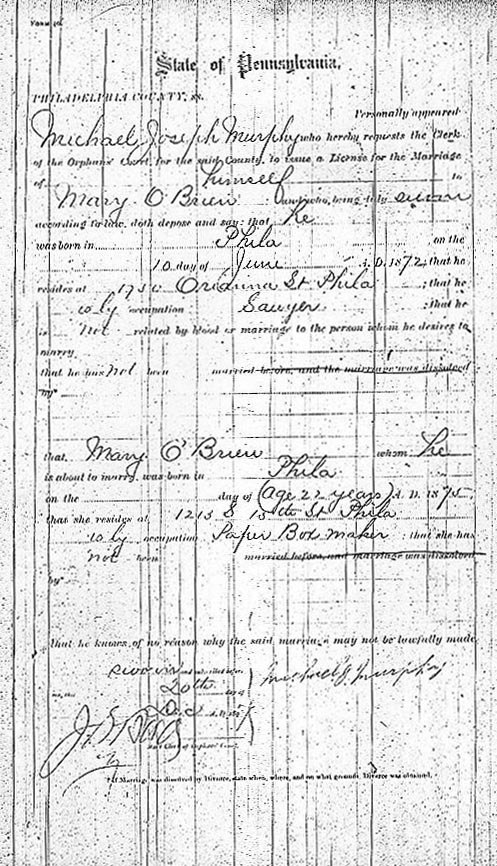 State of Pennsylvania,
PHILADELPHIA COUNTY, ss.
Personally appeared
Michael Joseph Murphy who hereby requests the Clerk
of the Orphans' Court for the said County, to issue a License for the Marriage
of himself to
Mary O'Brien and who, being duly sworn
according to law, doth depose and say: that he
was born in Phila on the
10 day of June A. D. 1872, that he
resides at Orianna St Phila ; that he
is by occupation Sawyer ; that he
is not related by blood or marriage to the person whom he desires to
marry
that he has not been married before, and the marriage was dissolved
by*
that Mary O'Brien whom he
is about to marry, was born in Phila
on the day of (age 22 years) A. D. 1875,
that she resides at 1213 S 15th St Phila
is by occupation Paper Box maker ; that she has
not been married before, and marriage was dissolved
by*
that he knows of no reason why the said marriage may not be lawfully made
Sworn and subscribed before
me, this 20th day
Dec A. D. 18
Michael J Murphy
Clerk of Orphans' Court.
*If Marriage was dissolved by Divorce, state when, where, and on what grounds Divorce was obtained.